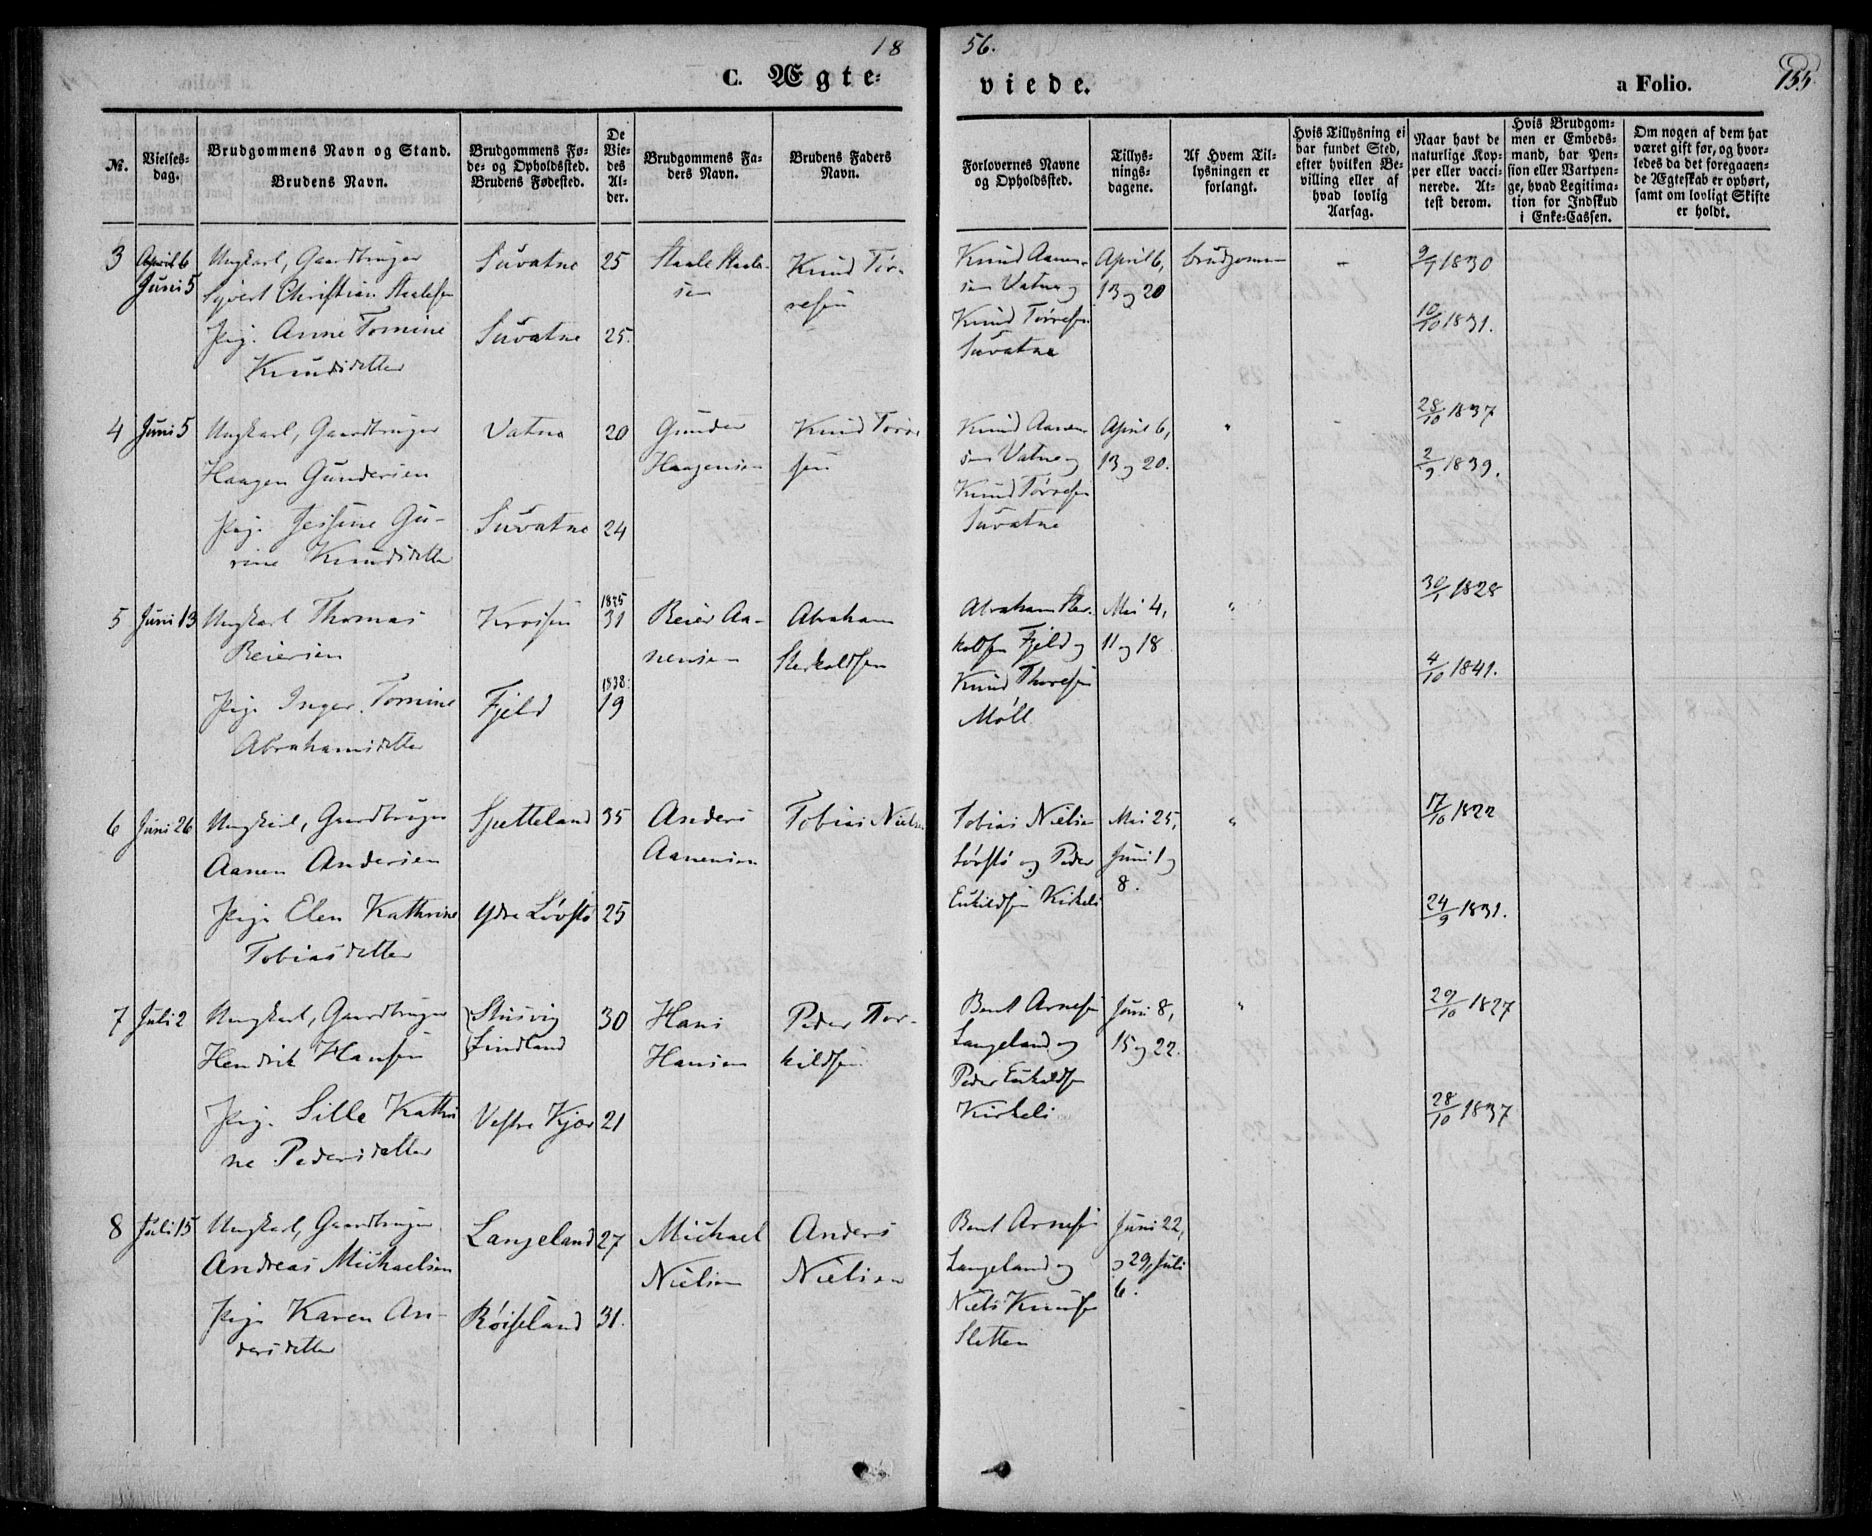 18
56.
155.
C. Ægte-
viede.
a Folio.
№.
Vielses-
dag.
Brudgommens Navn og Stand.
Brudens Navn.
Brudgommens Fø-
de- og Opholdssted.
Brudens Fødested.
De
Vie-
des
Al-
der.
Brudgommens Fa-
ders Navn.
Brudens Faders
Navn.
Forlovernes Navne
og Opholdssted.
Tillys-
nings-
dagene.
Af Hvem Til-
lysningen er
forlangt.
Hvis Tillysning ei
har fundet Sted,
efter hvilken Be-
villing eller af
hvad lovlig
Aarsag.
Naar havt de
naturlige Kop-
per eller vacci-
nerede. At-
test derom.
Hvis Brudgom-
men er Embeds-
mand, har Pen-
sion eller Vartpen-
ge, hvad Legitima-
tion for Indskud
i Enke-Cassen.
Om nogen af dem har
været gift før, og hvor-
ledes da det foregaaen-
de Ægteskab er ophørt,
samt om lovligt Skifte
er holdt.
3
April 6
Juni 5
Ungkarl, Gaardbruger
Syvert Christian Staalesen
Pig. Anne Tomine
Knudsdatter
Suvatne
Suvatne
25
25.
Staale Staale-
sen
Knud Tør-
resen
Knud Aanen-
sen Vatne og
Knud Tørresen
Suvatne
April 6,
13 og 20
brudgommen
-
9/7 1830
10/10 1831.
4
Juni 5
Ungkarl, Gaardbruger
Haagen Gundersen
Pig. Jessine Gu-
rine Knudsdatter
Vatne
Suvatne
20
24
Gunder
Haagensen
Knud Tørre-
sen
Knud Aanen-
sen Vatne og
Knud Tørresen
Suvatne
April 6,
13 og 20.
"
28/10 1837
2/9 1839.
5
Juni 13
Ungkarl Thomas
Reiersen
Pig. Inger Tomine
Abrahamsdatter
Kroisen
Fjeld
1825
31
1838.
19
Reier Aa-
nensen
Abraham
Sterkoldsen
Abraham Ster-
koldsen Fjeld og
Knud Thoresen
Moll
Mai 4,
11 og 18
"
30/1 1828
4/10 1841.
6
Juni 26
Ungkarl, Gaardbruger
Aanen Andersen
Pig. Elen Kathrine
Tobiasdatter
Spetteland
Ydre Løvstø
35
25
Anders
Aanensen
Tobias Nielsen
Tobias Nielsen
Løvstø og Peder
Eskildsen Kirkeli
Mai 25,
Juni 1 og
8.
"
17/10 1822
24/9 1831.
7
Juli 2
Ungkarl, Gaardbruger
Hendrik Hansen
Pig. Sille Kathri
ne Pedersdatter
Stusvig
Lindland
Vestre Kjør
30
21
Hans
Hansen
Peder Tor-
kildsen
Bent Arnesen
Langeland og
Peder Eskildsen
Kirkeli
Juni 8,
15 og 22.
"
29/10 1827
28/10 1837
8
Juli 15
Ungkarl, Gaardbruger
Andreas Michaelsen
Pig. Karen An-
dersdatter
Langeland
Røiseland
27
31.
Michael
Nielsen
Anders
Nielsen
Bent Arnesen
Langeland og
Niels Knudsen
Sletten
Juni 22,
29, Juli
6.